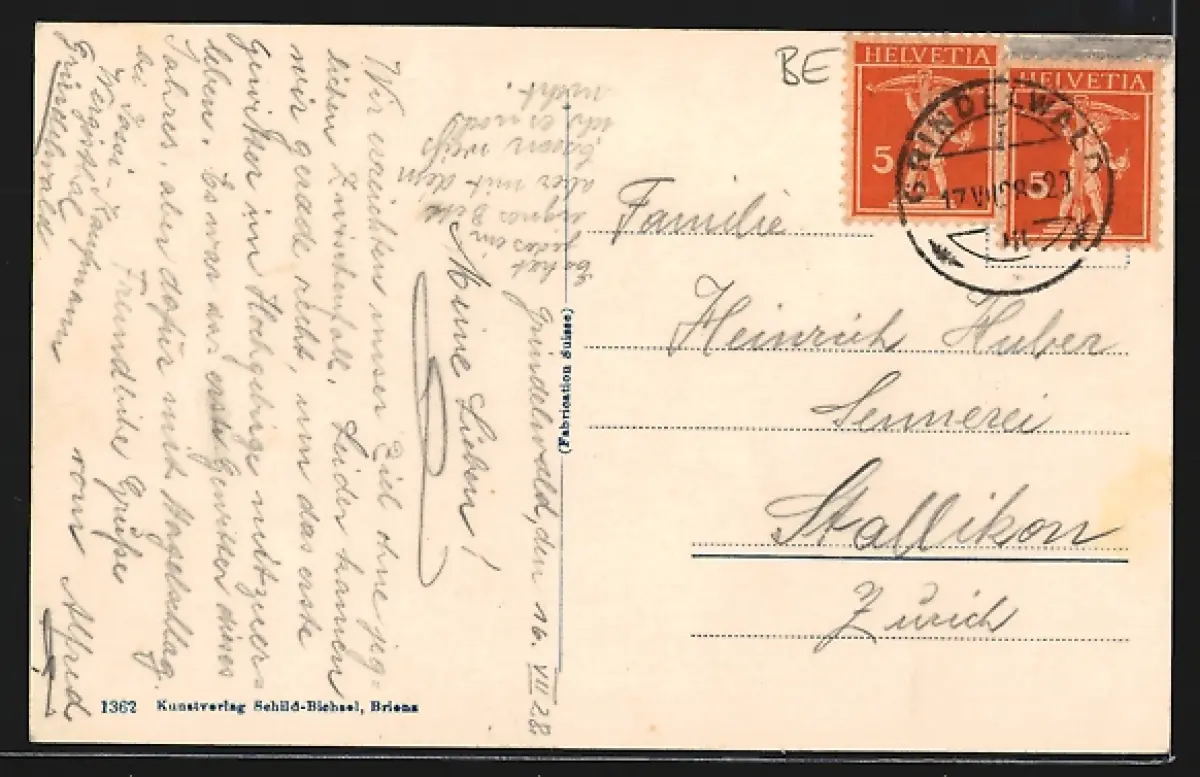 BE
HELVETIA
HELVETIA
5
5
GRINDELWALD
17.VII.28-20
Familie
Heinrich Huber
Sennerei
Stallikon
Zürich
(Fabrication Suisse)
1362 Kunstverlag Schild-Bichsel, Brienz
Grindelwald, den 16. VII 28
Meine Lieben!
Wir erreichten unser Ziel ohne jeg-
lichen Zwischenfall. Leider kamen
wir gerade recht, um das erste
Gewitter im Hochgebirge mitzuer-
leben. Es war das erste Gewitter dieses
Jahres, aber dafür mit Hagelschlag.
Freundliche Grüße
vom Alfred
bei
Kaufmann
Grindelwald
Es hat
jedes ein
eignes Bett
aber mit dem
weiß
ich es noch
nicht.